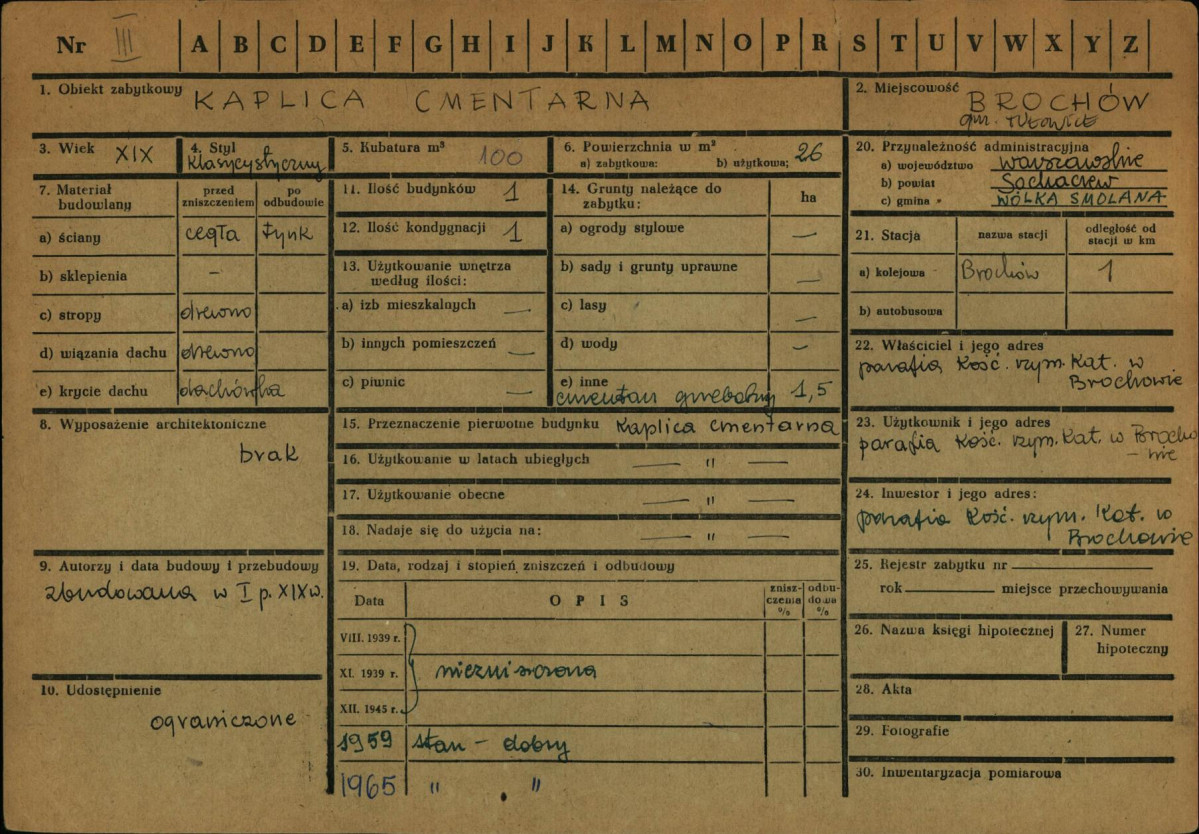 Nr III A B C D E F G H I J K L M N O P R S T U V W X Y Z
1. Obiekt zabytkowy KAPLICA CMENTARNA
2. Miejscowość BROCHÓW
gm. TUŁOWICE
3. Wiek XIX
4. Styl klasycystyczny
5. Kubatura m³ 100
6. Powierzchnia w m²
a) zabytkowa: b) użytkowa; 26
20. Przynależność administracyjna
a) województwo warszawskie
b) powiat Sochaczew
c) gmina " WÓLKA SMOLANA
7. Materiał budowlany
przed zniszczeniem
po odbudowie
a) ściany cegła tynk
b) sklepienia –
c) stropy drewno
d) wiązania dachu drewno
e) krycie dachu dachówka
11. Ilość budynków 1
12. Ilość kondygnacji 1
13. Użytkowanie wnętrza
według ilości:
a) izb mieszkalnych —
b) innych pomieszczeń —
c) piwnic —
14. Grunty należące do
zabytku: ha
a) ogrody stylowe —
b) sady i grunty uprawne —
c) lasy —
d) wody —
e) inne
cmentarz grzebalny 1,5
21. Stacja
nazwa stacji
odległość od
stacji w km
a) kolejowa Brochów 1
b) autobusowa
22. Właściciel i jego adres
parafia Kość. rzym. Kat. w
Brochowie
8. Wyposażenie architektoniczne
brak
15. Przeznaczenie pierwotne budynku Kaplica cmentarna
16. Użytkowanie w latach ubiegłych — " —
17. Użytkowanie obecne — " —
18. Nadaje się do użycia na: — " —
23. Użytkownik i jego adres
parafia Kość. rzym. Kat. w Brocho
– wie
24. Inwestor i jego adres:
parafia Kość. rzym. Kat. w
Brochowie
9. Autorzy i data budowy i przebudowy
zbudowana w I p. XIX w.
10. Udostępnienie
ograniczone
19. Data, rodzaj i stopień zniszczeń i odbudowy
Data
OPIS
znisz-
czenia
%
odbu-
dowa
%
VIII. 1939 r.
XI. 1939 r. niezniszczona
XII. 1945 r.
1959 stan – dobry
1965 " "
25. Rejestr zabytku nr
rok miejsce przechowywania
26. Nazwa księgi hipotecznej
27. Numer
hipoteczny
28. Akta
29. Fotografie
30. Inwentaryzacja pomiarowa